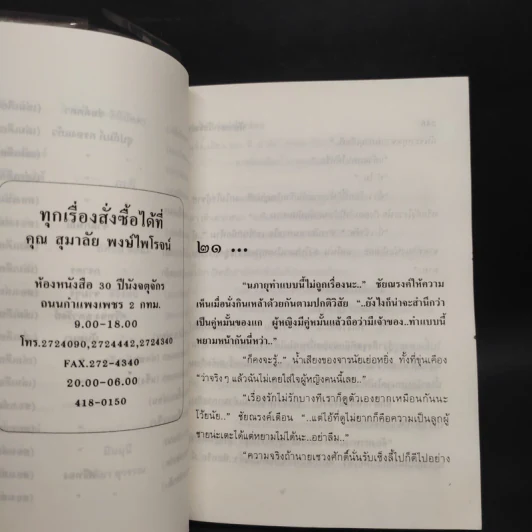 ทุกเรื่องสั่งซื้อได้ที่
คุณ สุมาลัย พงษ์ไพโรจน์
ห้องหนังสือ 30 ปีนังจตุจักร
ถนนกำแพงเพชร 2 กทม.
9.00-18.00
โทร.2724090,2724442,2724340
FAX.272-4340
20.00-06.00
418-0150
๒๑ ...
"นภาฤทำแบบนี้ไม่ถูกเรื่องนะ.." ชัยณรงค์ให้ความ
เห็นเมื่อนั่งกินเหล้าด้วยกันตามปกติวิสัย "..ยังไงก็น่าจะสำนึกว่า
เป็นคู่หมั้นของแก ผู้หญิงมีคู่หมั้นแล้วถือว่ามีเจ้าของ..ทำแบบนี้
หยามหน้ากันนี่หว่า.."
"ก็คงจะรู้.." น้ำเสียงของจารนัยเย่อหยิ่ง ทั้งที่ขุ่นเคือง
"ว่าจริงๆ แล้วฉันไม่เคยใส่ใจผู้หญิงคนนี้เลย.."
"เรื่องรักไม่รักบางทีเราก็ดูตัวเองยากเหมือนกันนะ
โว้ยนัย.." ชัยณรงค์เตือน "..แต่ไอ้ที่ดูไม่ยากก็คือความเป็นลูกผู้
ชายน่ะเตะได้แต่หยามไม่ได้นะ..อย่าลืม.."
"ความจริงถ้านายเชวงศักดิ์นั่นรับเซ็งลี้ไปก็ดีไปอย่าง